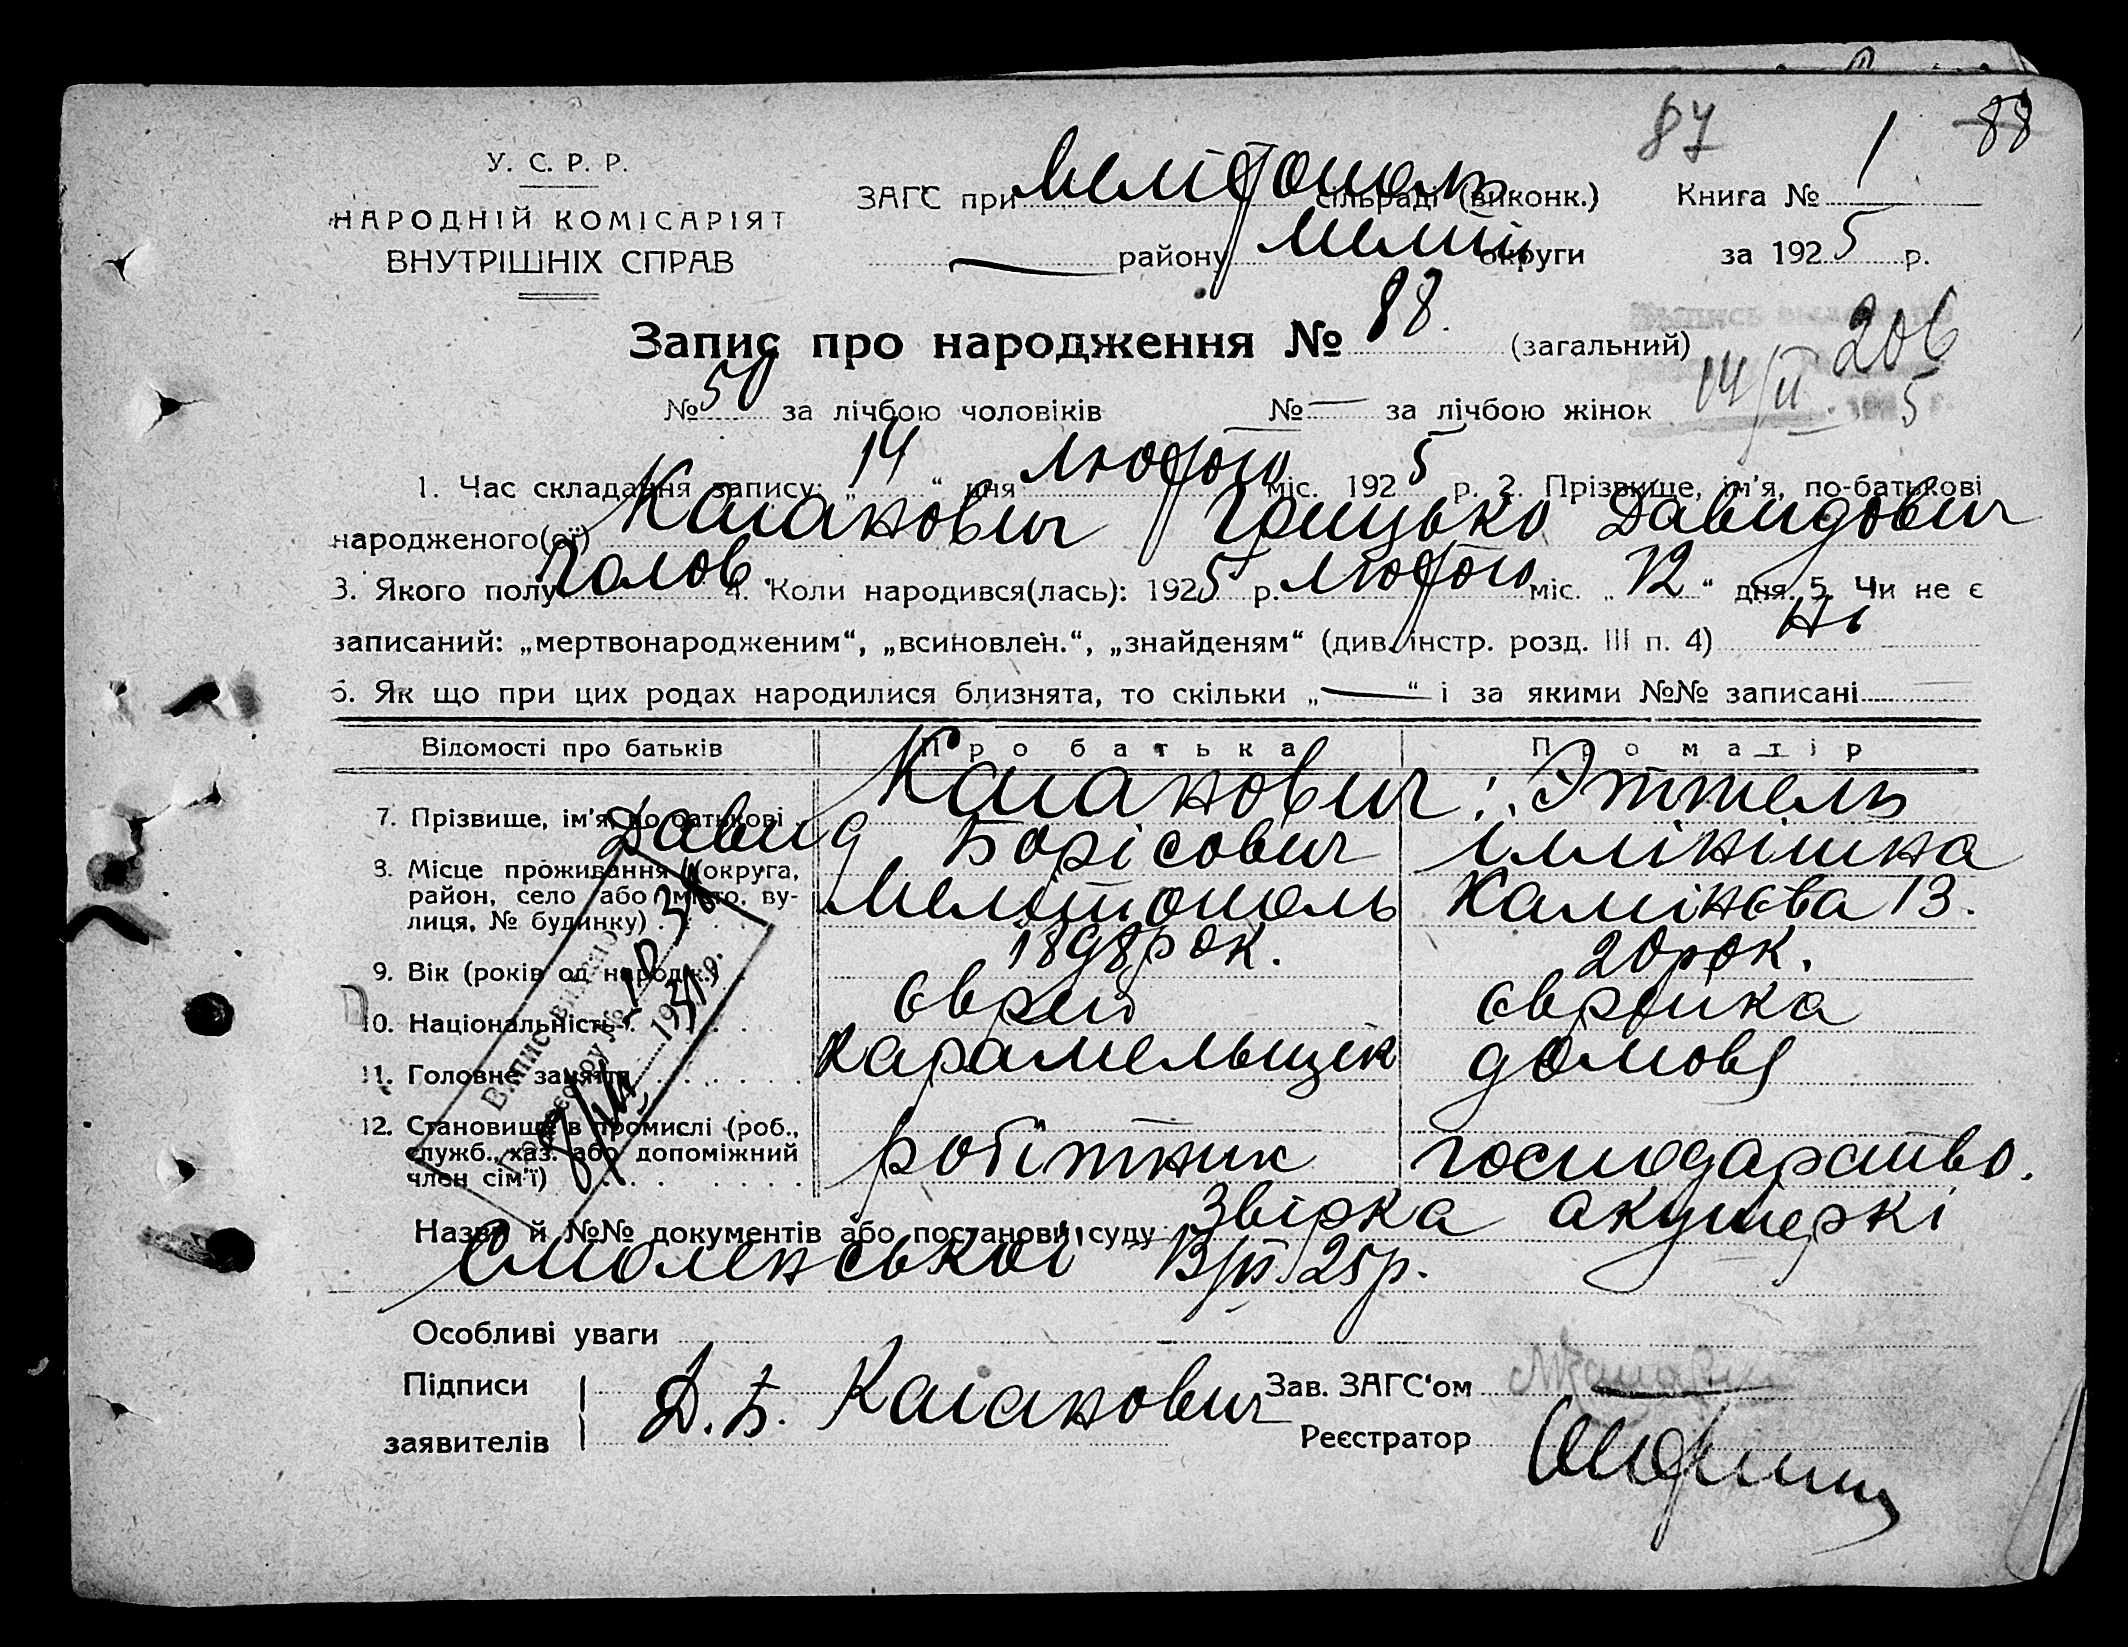 87 88
У. С. Р. Р.
НАРОДНІЙ КОМІСАРІЯТ
ВНУТРІШНІХ СПРАВ
ЗАГС при Мелітополь сільраді (виконк.) Книга № 1
району Меліт округи за 1925 р.
Запис про народження № 88. (загальний)
206
14/II 5
№ 50 за лічбою чоловіків № — за лічбою жінок
1. Час складання запису: „14“ дня Лютого міс. 1925 р. 2. Прізвище, ім'я, по-батькові
народженого(ої) Каганович Грицько Давидович
3. Якого полу Чолов. 4. Коли народився(лась): 1925 р. Лютого міс. „12“ дня. 5. Чи не є
записаний: „мертвонародженим“, „всиновлен.“, „знайденям“ (див. інстр. розд. III п. 4) Ні
6. Як що при цих родах народилися близнята, то скільки „—“ і за якими №№ записані
Відомості про батьків Про батька Про матір
7. Прізвище, ім'я, по батькові Каганович Давид Борісович Эттель
8. Місце проживання (округа, район, село або місто, вулиця, № будинку) Мелітополь Камінєва 13.
9. Вік (років од народж.) 1898 рок. 20 рок.
10. Національність Єврей Єврейка
11. Головне заняття Карамельщік домовя
12. Становище в промислі (роб., служб., хаз. або допоміжний член сім'ї) робітник господарство.
Назви й №№ документів або постанови суду Звірка акушеркі
Смоленської 13/II 25 р.
Особливі уваги
Підписи
заявителів Д. Б. Каганович
Зав. ЗАГС'ом
Реєстратор